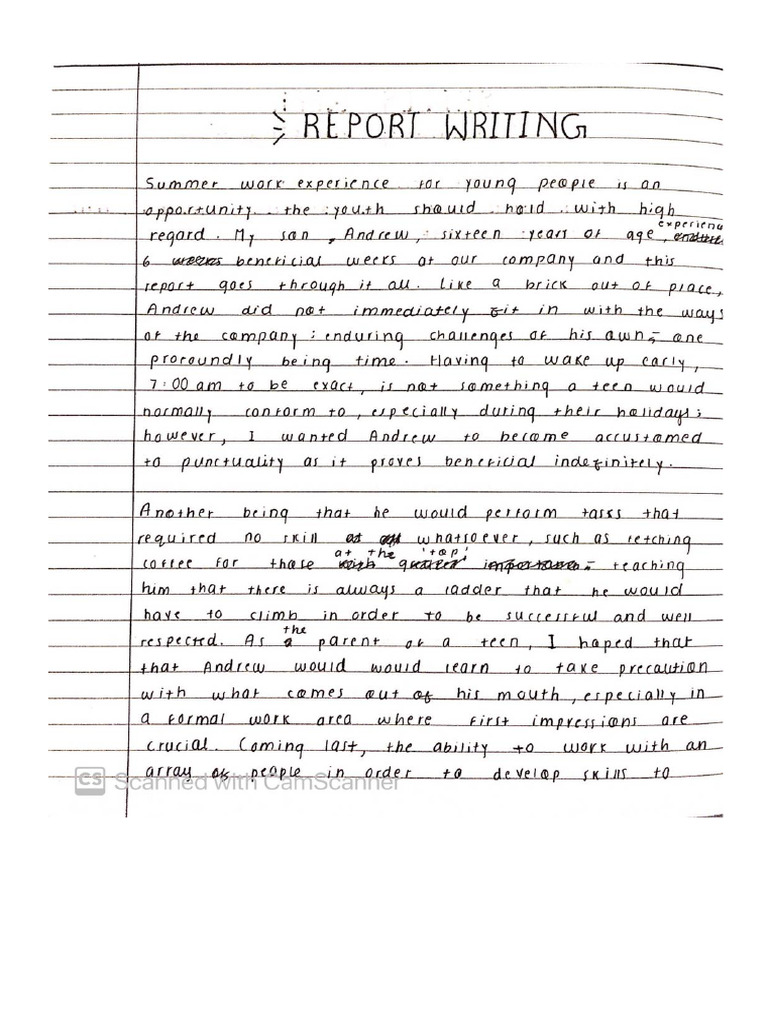 REPORT WRITING
Summer work experience for young people is an
opportunity the youth should hold with high
regard. My son, Andrew, sixteen years of age, experienc
6 weeks beneficial weeks at our company and this
report goes through it all. Like a brick out of place,
Andrew did not immediately fit in with the ways
of the company; enduring challenges of his own - one
profoundly being time. Having to wake up early,
7:00 am to be exact, is not something a teen would
normally conform to, especially during their holidays;
however, I wanted Andrew to become accustomed
to punctuality as it proves beneficial indefinitely.
Another being that he would perform tasks that
required no skill whatsoever, such as fetching
coffee for those at the 'top' - teaching
him that there is always a ladder that he would
have to climb in order to be successful and well
respected. As the parent of a teen, I hoped that
that Andrew would would learn to take precaution
with what comes out of his mouth, especially in
a formal work area where first impressions are
crucial. Coming last, the ability to work with an
array of people in order to develop skills to
CS Scanned with CamScanner